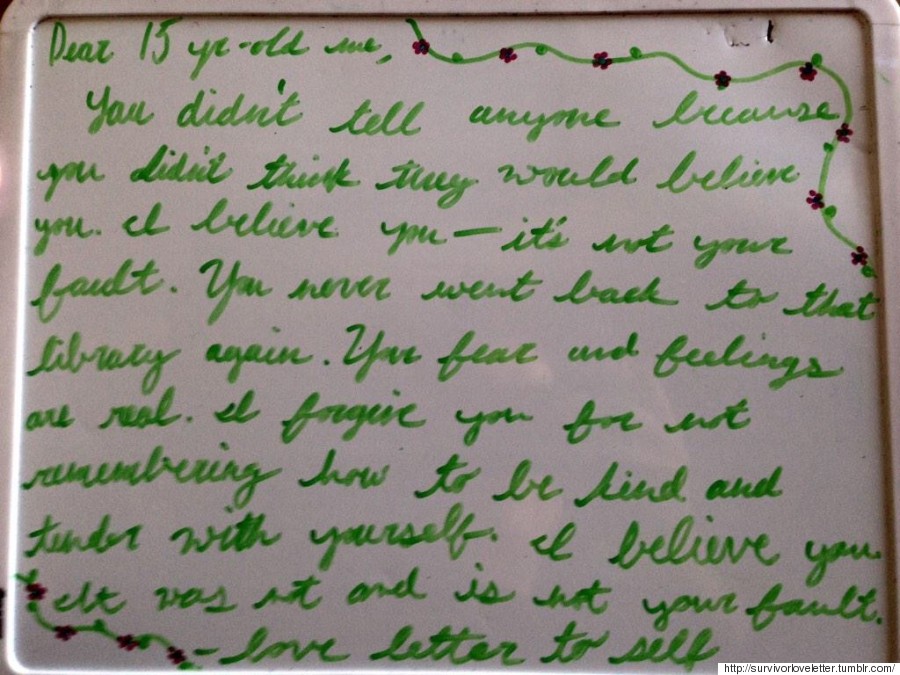 Dear 15 yr-old me,
You didn't tell anyone because
you didn't think they would believe
you. I believe you — it's not your
fault. You never went back to that
library again. Your fear and feelings
are real. I forgive you for not
remembering how to be kind and
tender with yourself. I believe you.
It was not and is not your fault.
- love letter to self
http://survivorloveletter.tumblr.com/